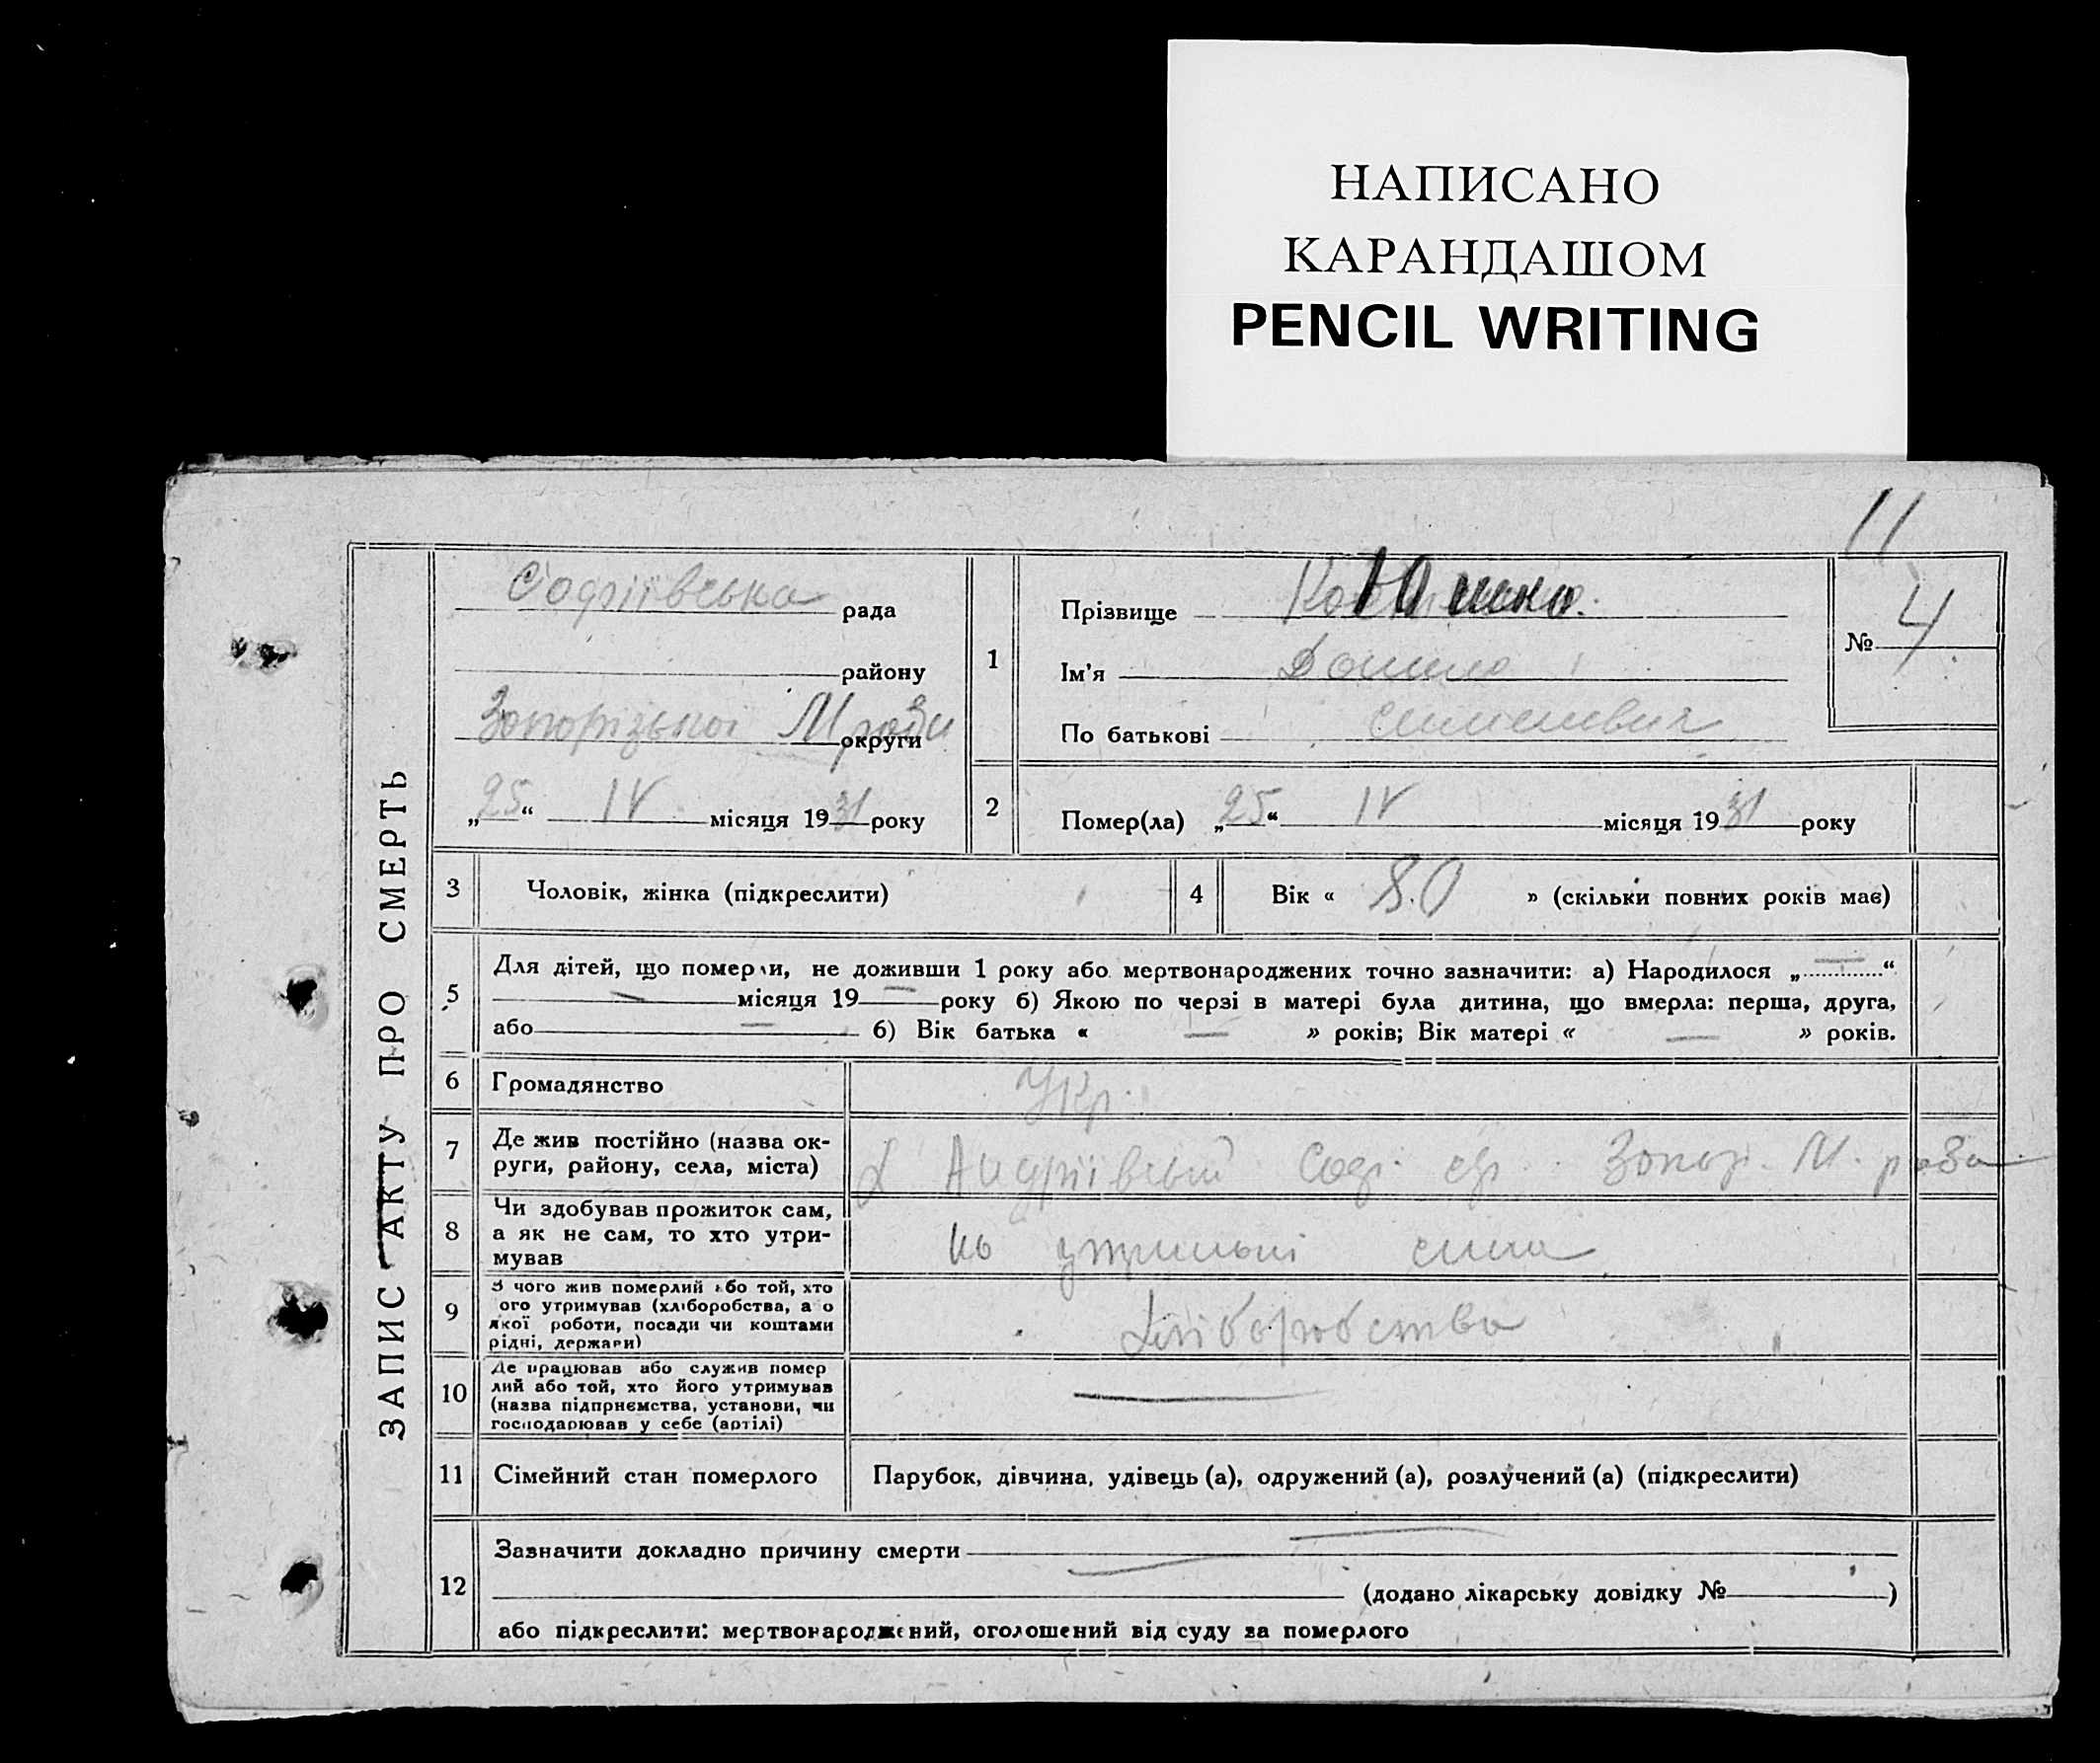 НАПИСАНО
КАРАНДАШОМ
PENCIL WRITING
11
ЗАПИС АКТУ ПРО СМЕРТЬ
Софіївська рада
району
Запорізької М ради округи
„25“ IV місяця 1931 року
1
Прізвище
Ім'я Данило
По батькові
№ 4
2
Помер(ла) „25“ IV місяця 1931 року
3 Чоловік, жінка (підкреслити)
4 Вік « 80 » (скільки повних років має)
5
Для дітей, що померли, не доживши 1 року або мертвонароджених точно зазначити: а) Народилося „—“
— місяця 19— року б) Якою по черзі в матері була дитина, що вмерла: перша, друга,
або — б) Вік батька « — » років; Вік матері « — » років.
6 Громадянство Укр.
7 Де жив постійно (назва ок-
руги, району, села, міста) х Андріївський Соф. с/р. Запоз. М. рада
8 Чи здобував прожиток сам,
а як не сам, то хто утри-
мував на утримані сина
9 З чого жив померлий або той, хто
ого утримував (хліборобства, а о
якої роботи, посади чи коштами
рідні, держави) Хліборобства
10 Де працював або служив помер
лий або той, хто його утримував
(назва підприємства, установи, чи
господарював у себе (артілі) —
11 Сімейний стан померлого Парубок, дівчина, удівець (а), одружений (а), розлучений (а) (підкреслити)
12
Зазначити докладно причину смерти —
(додано лікарську довідку № )
або підкреслити: мертвонароджений, оголошений від суду за померлого